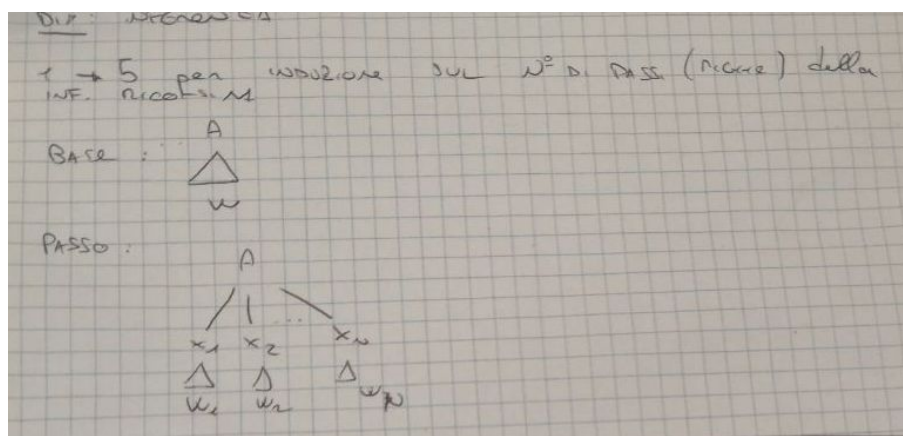 DIM:
1 → 5 per INDUZIONE SUL Nº DI PASSI (righe) della
INF. RICORSIVA
BASE :
A
w
PASSO :
A
...
x1 x2 xN
w1 w2 wN